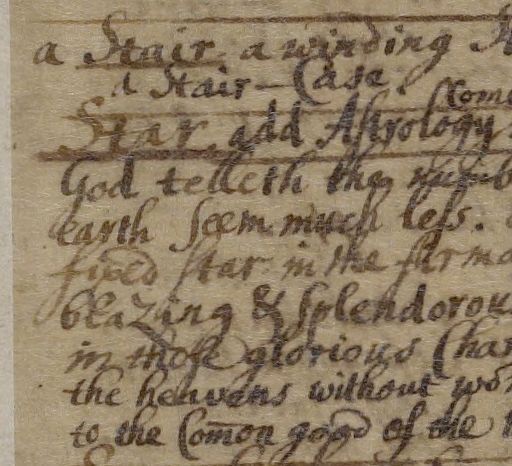 a Stair. a winding
a Stair-Case.
Come
Star. add Astrology.
God telleth the
earth seem much less.
fixed star in the firma
blazing & splendorous
in those glorious Char
the heavens without wo
to the Com̄on good of the